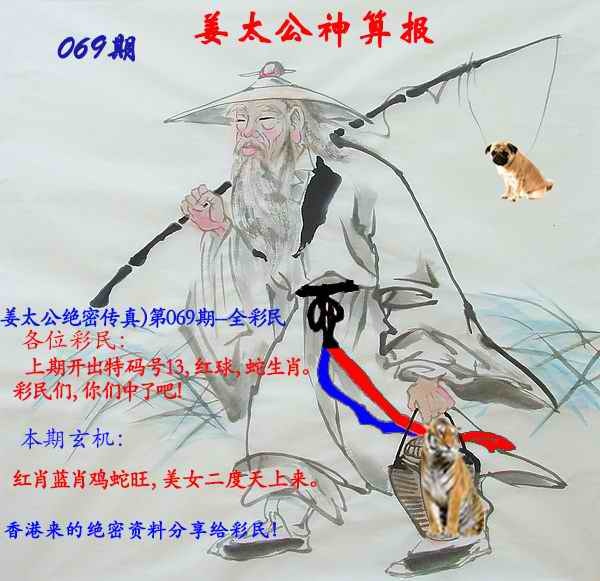 姜太公神算报
069期
姜太公绝密传真)第069期--全彩民
各位彩民:
上期开出特码号13,红球,蛇生肖。
彩民们,你们中了吧!
本期玄机:
红肖蓝肖鸡蛇旺,美女二度天上来。
香港来的绝密资料分享给彩民!